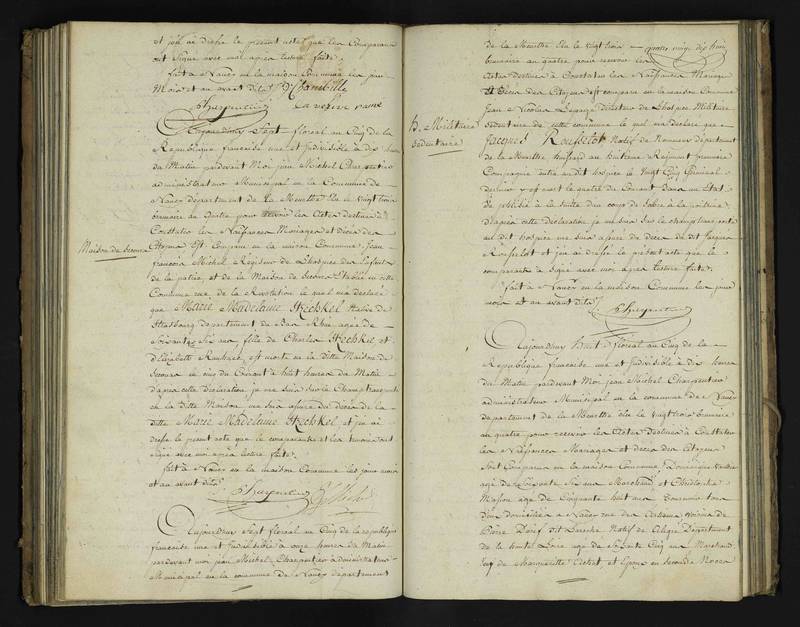 et j'ai dressé le présent acte que les Comparans
ont signé avec moi après lecture faite.
fait à Nancy en la maison Commune les jour
Mois et an avant dits
Charpentier
Aujourdhuy Sept floréal an Cinq de la
Republique française une et Indivisible à dix heures
du Matin pardevant Moi jean Michel Charpentier
administrateur Municipal en la Commune de
Nancy département de la Meurthe Elu le vingt trois
brumaire an Quatre pour recevoir les Actes destinés à
Constater les Naissances Mariages et Décès des
Citoyens Est Comparu en la maison Commune jean
françois Michel Regisseur de Lhospice des Enfants
de la patrie, et de la Maison de Secours Etablie en cette
Commune rue de la Revolution lequel m'a déclaré
que Marie Madelaine Stechkel Native de
Strasbourg departement du Bas Rhin agée de
Soixante Six ans fille de Charles Stechkel et
d'Elizabeth est morte en la ditte Maison de
Secours ce du Courant à huit heures du Matin
d'après cette Déclaration je me suis sur le Champ transporté
en la ditte Maison me suis assuré du décès de la
ditte Marie Madelaine Stechkel et j'ai
dressé le présent acte que le comparant et les temoins ont
signé avec moi après lecture faite.
fait à Nancy en la maison Commune les jour mois
et an avant dits
Charpentier
Aujourdhuy Sept floréal an Cinq de la republique
française une et Indivisible à onze heures du Matin
pardevant moi jean Michel Charpentier administrateur
Municipal en la commune de Nancy département
Maison de Secours
de la Meurthe Elu le vingt trois
brumaire an quatre pour recevoir les
Actes destinés à Constater les Naissances Mariages
et Décès des Citoyens est comparu en la maison Commune
Jean Nicolas Directeur de Lhospice Militaire
Sédentaire de cette commune lequel m'a déclaré que
Jacques Rousselot Natif de département
de la Meurthe hussard au huitieme Regiment premiere
Compagnie entré au dit hospice le vingt Cinq Germinal
dernier y est mort le quatre du Courant dans un état
de phtisie à la suite d'un coup de Sabre à la poitrine
d'après cette Déclaration je me suis sur le champ transporté
au dit hospice me suis assuré du décès du dit Jacques
Rousselot et j'en ai dressé le présent acte que le
comparant a signé avec moi après lecture faite.
fait à Nancy en la maison Commune les jour
mois et an avant dits
Charpentier
H. Militaire
Sédentaire
Aujourdhuy huit floréal an Cinq de la
Republique française une et Indivisible à dix heures
du Matin pardevant Moi jean Michel Charpentier
administrateur Municipal en la commune de Nancy
departement de la Meurthe élu le vingt trois brumaire
an quatre pour recevoir les Actes Destinés à Constater
les Naissances Mariages et décès des Citoyens
Sont Comparus en la maison Commune Dominique
agé de Soixante Six ans Marchand et Christophe
Masson agé de Cinquante huit ans tous
deux domiciliés à Nancy rue des Artisans voisins de
Pierre dit Laroche Natif de département
de la haute Loire agé de Soixante Cinq ans Marchand
veuf de Marguerite et Epoux en Seconde Noces